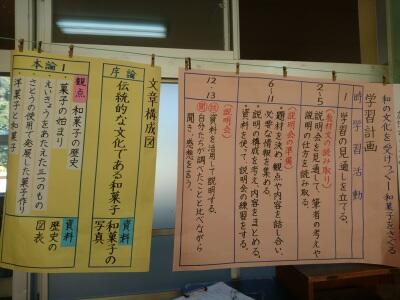 和の文化を受けつぐー和菓子をさぐる
学習計画
時
学習活動
1
学習の見通しを立てる。
2〜5
(教材文の読み取り)
説明会を見通して、筆者の考えや
説明の仕方を読みとる。
6〜11
(説明会の準備)
・題材を決め、観点や内容を話し合い、
必要な情報を集める。
・説明の構成を考え、内容をまとめる。
・資料を使って、説明会の練習をする。
12
13
(説明会)
話 資料を活用して説明する。
聞 自分たちが調べたことと比べながら
聞き、感想を言う。
文章構成図
序論
伝統的な文化である和菓子
資料
和菓子の
写真
本論1
観点 和菓子の歴史
・菓子の始まり
・えいきょうをあたえた三つのもの
・さとうの使用で発展した菓子作り
・洋菓子と和菓子
資料
歴史の
図表